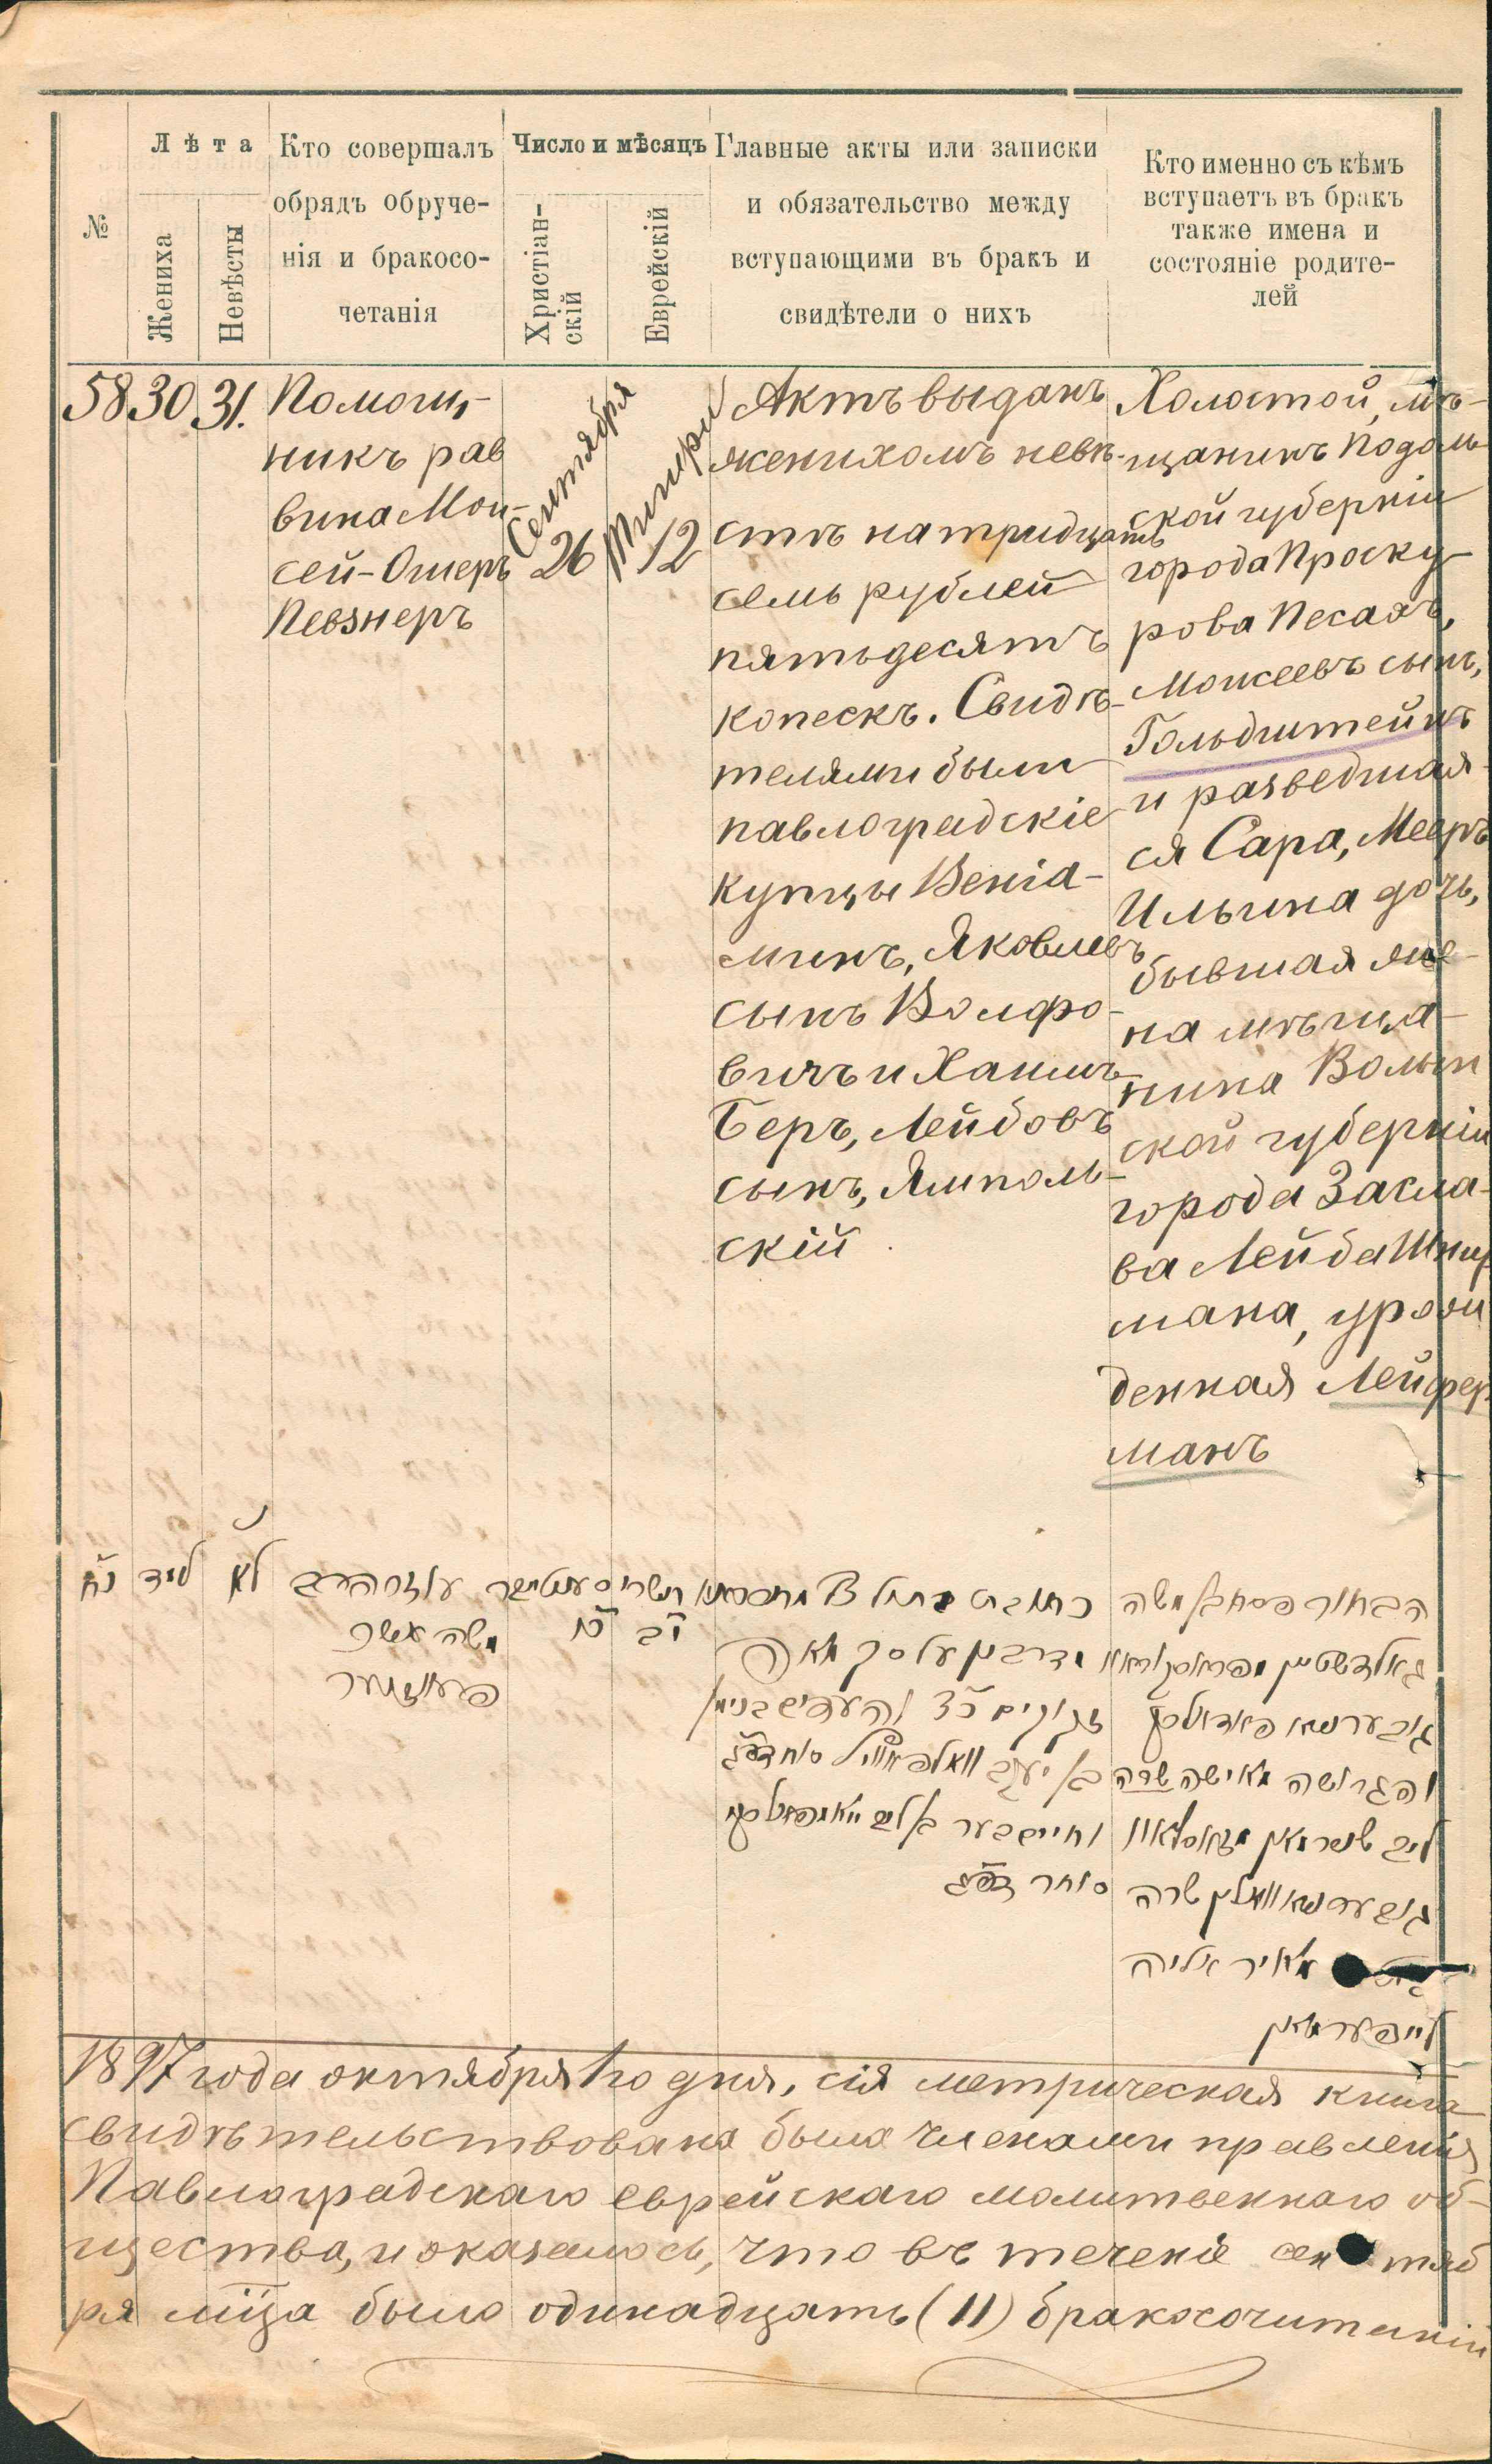 №
Лѣта
Жениха
Невѣсты
Кто совершалъ
обрядъ обруче-
нія и бракосо-
четанія
Число и мѣсяцъ
Христіан-
скій
Еврейскій
Главные акты или записки
и обязательство между
вступающими въ бракъ и
свидѣтели о нихъ
Кто именно съ кѣмъ
вступаетъ въ бракъ
также имена и
состояніе родите-
лей
58
30
31.
Помощ-
никъ рав
вина Мои-
сей-Ошеръ
Певзнеръ
Сентября
26
Тишри
12
Актъ выданъ
женихомъ невѣ-
стѣ на тридцать
семь рублей
пятьдесятъ
копеекъ. Свидѣ-
телями были
павлоградскіе
купцы Веніа-
минъ, Яковлевъ
сынъ Волфо-
вичъ и Хаимъ
Беръ, Лейбовъ
сынъ, Ямполь-
скій
Холостой, мѣ-
щанинъ Подоль
ской губерніи
города Проску-
рова Песахъ,
Моисеевъ сынъ,
Гольдштейнъ
и разведшая-
ся Сара, Мееръ
Ильина дочь,
бывшая же-
на мѣща-
нина Волын
ской губерніи
города Засла-
ва Лейба Шнур
мана, урож
денная Лейфер
манъ
נח
לא
עוזר הרב
משה אשר
פעווזנער
תשרי
יב
כו
הבחור פסח ב משה
גאלדשטיין
והגרושה שרה
שרה
מאיר אליה
לייפערמאן
זקוקים
וחיים בער
סוחר
1897 года октября 1го дня, сія метрическая книга
свидѣтельствована была членами правленія
Павлоградскаго еврейскаго молитвеннаго об-
щества, и оказалось, что въ теченіе сентяб
ря мца было одинадцать (11) бракосочитаній